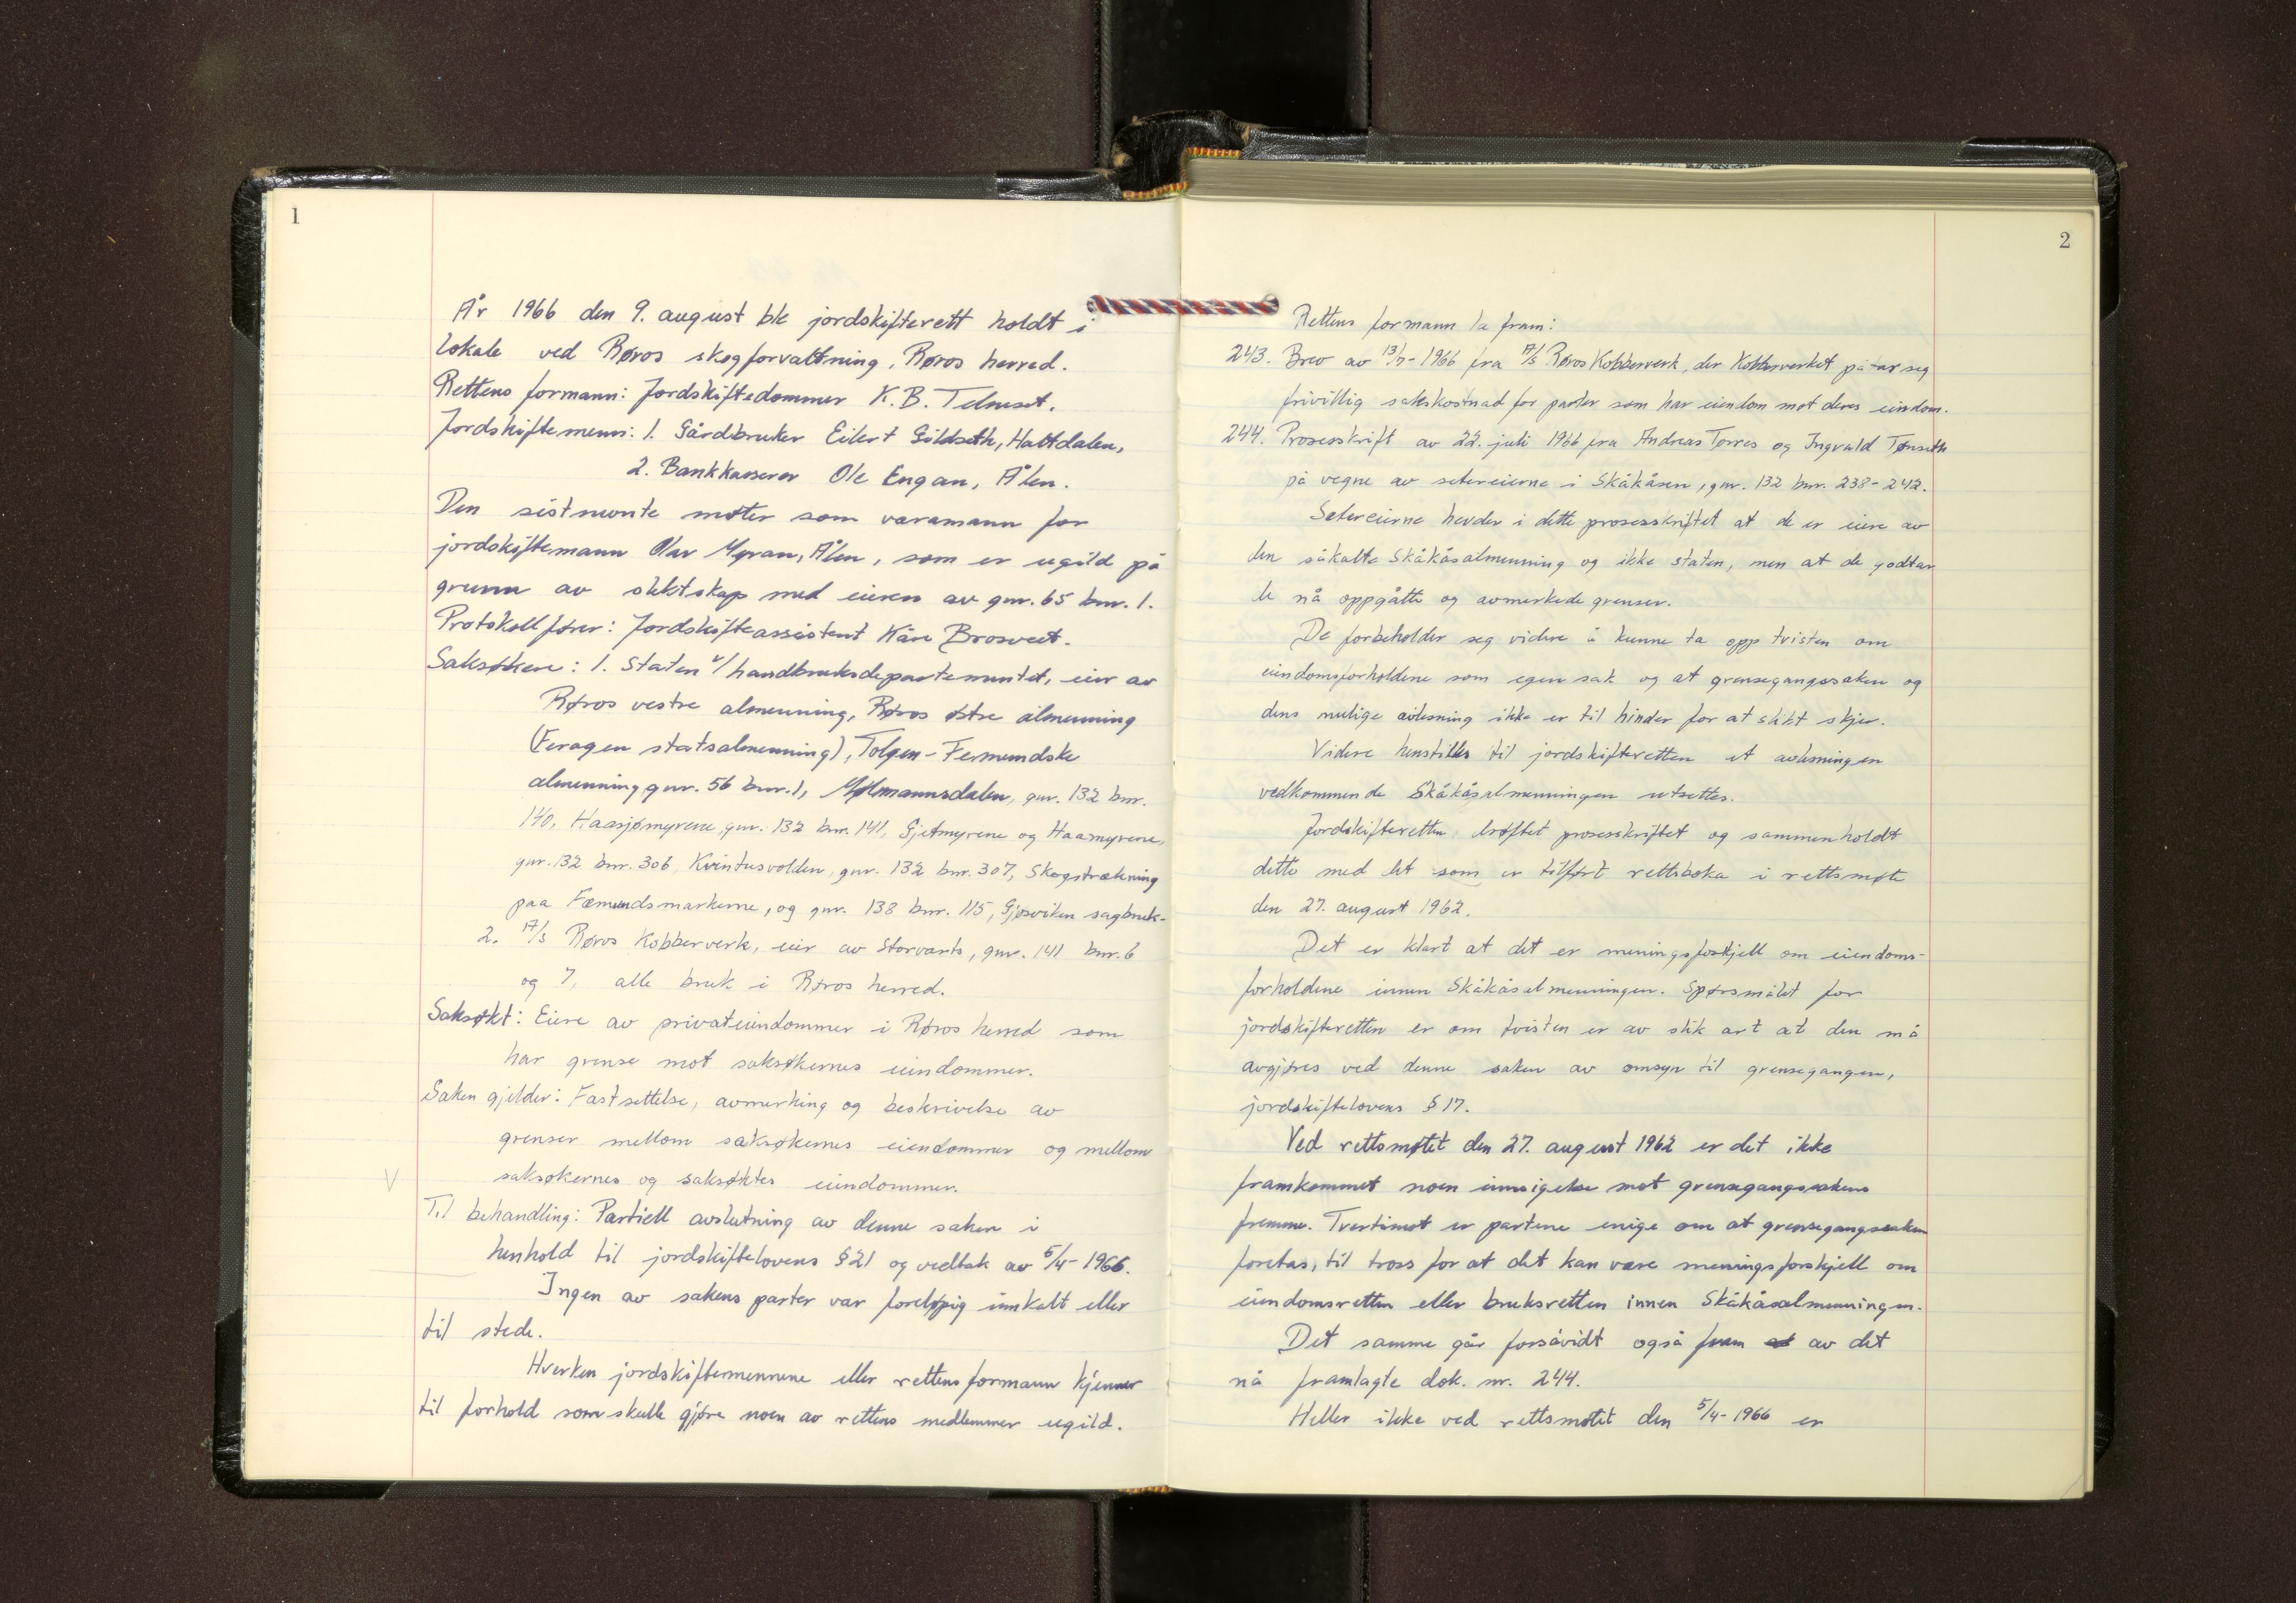 1
År 1966 den 9. august ble jordskifterett holdt i
lokale ved Røros skogforvaltning, Røros herred.
Rettens formann: Jordskiftedommer K. B. Telneset.
Jordskiftemenn: 1. Gårdbruker Eilert Gildseth, Haltdalen,
2. Bankkasserer Ole Engan, Ålen.
Den sistnevnte møter som varamann for
jordskiftemann Olav Myran, Ålen, som er ugild på
grunn av slektskap med eieren av gnr. 65 bnr. 1.
Protokollfører: Jordskifteassistent Kåre Brosveet.
Saksøkere: 1. Staten v/ Landbruksdepartementet, eier av
Røros vestre almenning, Røros østre almenning
(Feragen statsalmenning), Tolgen-Femundske
almenning gnr. 56 bnr. 1, Mølmannsdalen, gnr. 132 bnr.
140, Haasjømyrene, gnr. 132 bnr. 141, Gjetmyrene og Haamyrene,
gnr. 132 bnr. 306, Kvintusvolden, gnr. 132 bnr. 307, Skogstrækning
paa Fæmundsmarkerne, og gnr. 138 bnr. 115, Gjøsviken sagbruk.
2. A/S Røros Kobberverk, eier av Storvarts, gnr. 141 bnr. 6
og 7, alle bruk i Røros herred.
Saksøkt: Eiere av privateiendommer i Røros herred som
har grense mot saksøkernes eiendommer.
Saken gjelder: Fastsettelse, avmerking og beskrivelse av
grenser mellom saksøkernes eiendommer og mellom
saksøkernes og saksøktes eiendommer.
Til behandling: Partiell avslutning av denne saken i
henhold til jordskiftelovens § 21 og vedtak av 5/4-1966.
Ingen av sakens parter var foreløpig innkalt eller
til stede.
Hverken jordskiftemennene eller rettens formann kjenner
til forhold som skulle gjøre noen av rettens medlemmer ugild.
2
Rettens formann la fram:
243. Brev av 13/7-1966 fra A/S Røros Kobberverk, der Kobberverket påtar seg
frivillig sakskostnad for parter som har eiendom mot deres eiendom.
244. Prosesskrift av 22. juli 1966 fra Andreas Torres og Ingvald Tønseth
på vegne av setereierne i Skåkåsen, gnr. 132 bnr. 238-242.
Setereierne hevder i dette prosesskriftet at de er eiere av
den såkalte Skåkåsalmenning og ikke staten, men at de godtar
de nå oppgåtte og avmerkede grenser.
De forbeholder seg videre å kunne ta opp tvisten om
eiendomsforholdene som egen sak og at grensegangssaken og
dens mulige avlesning ikke er til hinder for at slikt skjer.
Videre henstilles til jordskifteretten at avlesningen
vedkommende Skåkåsalmenningen utsettes.
Jordskifteretten drøftet prosesskriftet og sammenholdt
dette med det som er tilført rettsboka i rettsmøte
den 27. august 1962.
Det er klart at det er meningsforskjell om eiendoms-
forholdene innen Skåkåsalmenningen. Spørsmålet for
jordskifteretten er om tvisten er av slik art at den må
avgjøres ved denne saken av omsyn til grensegangen,
jordskiftelovens § 17.
Ved rettsmøtet den 27. august 1962 er det ikke
framkommet noen innsigelse mot grensegangssakens
fremme. Tvertimot er partene enige om at grensegangssaken
foretas, til tross for at det kan være meningsforskjell om
eiendomsretten eller bruksretten innen Skåkåsalmenningen.
Det samme går forsåvidt også fram av det
nå framlagte dok. nr. 244.
Heller ikke ved rettsmøtet den 5/4-1966 er